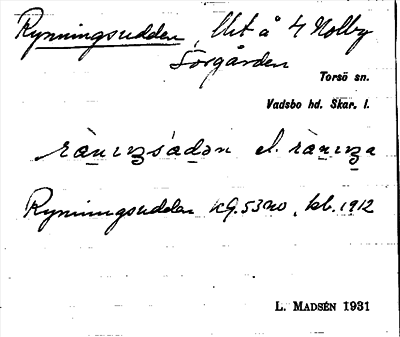 Rynningsudden, Utt å 4 Nolby
Sörgården
Torsö sn.
Vadsbo hd. Skar. l.
ràṉıṉʒsʹàdən el. ràṉıṉʒa
Rynningsudden KG.53 NO, kbl. 1912
L. MADSÉN 1931